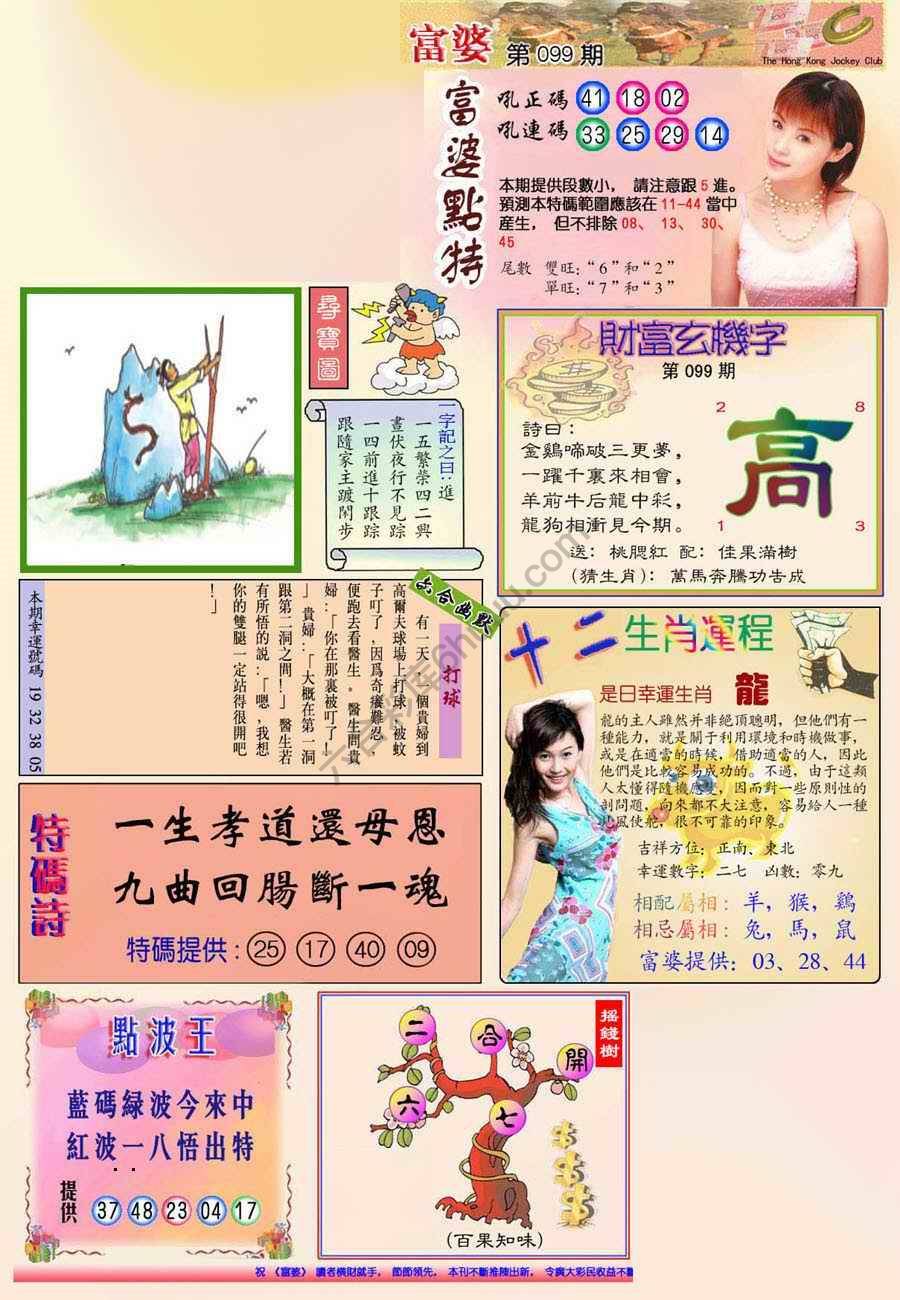 富婆 第099期
The Hong Kong Jockey Club
富婆點特
吼正碼 41 18 02
吼連碼 33 25 29 14
本期提供段數小，請注意跟5進。
預測本特碼範圍應該在11-44當中
産生，但不排除08、13、30、
45
尾數 雙旺:“6”和“2”
單旺:“7”和“3”
尋寶圖
一字記之曰:進
一五繁榮四二與
晝伏夜行不見踪
一四前進十跟踪
跟隨家主踱鬧步
財富玄機字
第099期
2 8
高
1 3
詩曰:
金鷄啼破三更夢，
一躍千裏來相會，
羊前牛后龍中彩，
龍狗相衝見今期。
送: 桃腮紅 配: 佳果滿樹
(猜生肖): 萬馬奔騰功告成
六合幽默
打球
有一天,一個貴婦到
高爾夫球場上打球,被蚊
子叮了,因爲奇癢難忍,
便跑去看醫生。醫生問貴
婦:「你在那裏被叮了!
」貴婦:「大概在第一洞
跟第二洞之間!」醫生若
有所悟的說:「嗯,我想
你的雙腿一定站得很開吧
!」
本期幸運號碼 19 32 38 05
十二生肖運程
是日幸運生肖 龍
龍的主人雖然并非絕頂聰明，但他們有一
種能力，就是關于利用環境和時機做事，
或是在適當的時候，借助適當的人，因此
他們是比較容易成功的。不過，由于這類
人太懂得隨機應變，因而對一些原則性的
剖問題，向來都不大注意，容易給人一種
見風使舵，很不可靠的印象。
吉祥方位: 正南、東北
幸運數字: 二七 凶數: 零九
相配屬相: 羊，猴，鷄
相忌屬相: 兔，馬，鼠
富婆提供: 03、28、44
特碼詩
一生孝道還母恩
九曲回腸斷一魂
特碼提供: 25 17 40 09
點波王
藍碼緑波今來中
紅波一八悟出特
提供 37 48 23 04 17
搖錢樹
二 合 開
六 七
(百果知味)
祝《富婆》讀者橫財就手，節節領先，本刊不斷推陳出新，令廣大彩民收益不斷